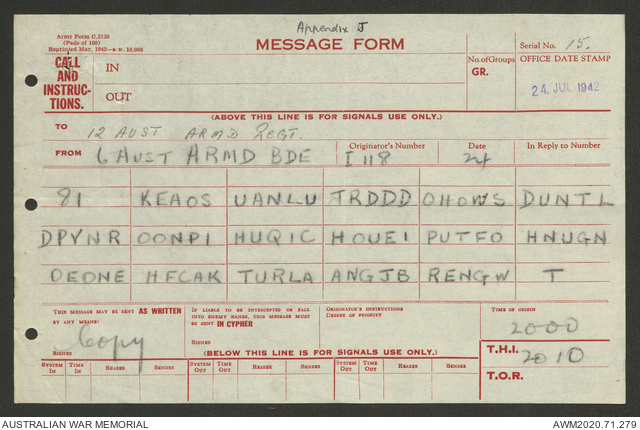 Appendix J
Army Form C.2130
(Pads of 100)
Reprinted May, 1942
MESSAGE FORM
Serial No. 15.
CALL AND INSTRUCTIONS.
IN
OUT
No. of Groups
GR.
OFFICE DATE STAMP
24 JUL 1942
(ABOVE THIS LINE IS FOR SIGNALS USE ONLY.)
TO 12 AUST ARMD REGT.
FROM 6 AUST ARMD BDE
Originator's Number
I 118
Date
24
In Reply to Number
81 KEAOS UANLU TRDDD OHOWS DUNTL
DPYNR OONPI HUQIC HOUEI PUTFO HNUGN
OEONE HFCAK TURLA ANGJB RENGW T
THIS MESSAGE MAY BE SENT AS WRITTEN
BY ANY MEANS:
Copy
SIGNED
IF LIABLE TO BE INTERCEPTED OR FALL
INTO ENEMY HANDS, THIS MESSAGE MUST
BE SENT IN CYPHER
SIGNED
ORIGINATOR'S INSTRUCTIONS
DEGREE OF PRIORITY
TIME OF ORIGIN
2000
(BELOW THIS LINE IS FOR SIGNALS USE ONLY.)
T.H.I. 2010
T.O.R.
SYSTEM IN TIME IN READER SENDER SYSTEM OUT TIME OUT READER SENDER SYSTEM OUT TIME OUT READER SENDER
AUSTRALIAN WAR MEMORIAL
AWM2020.71.279